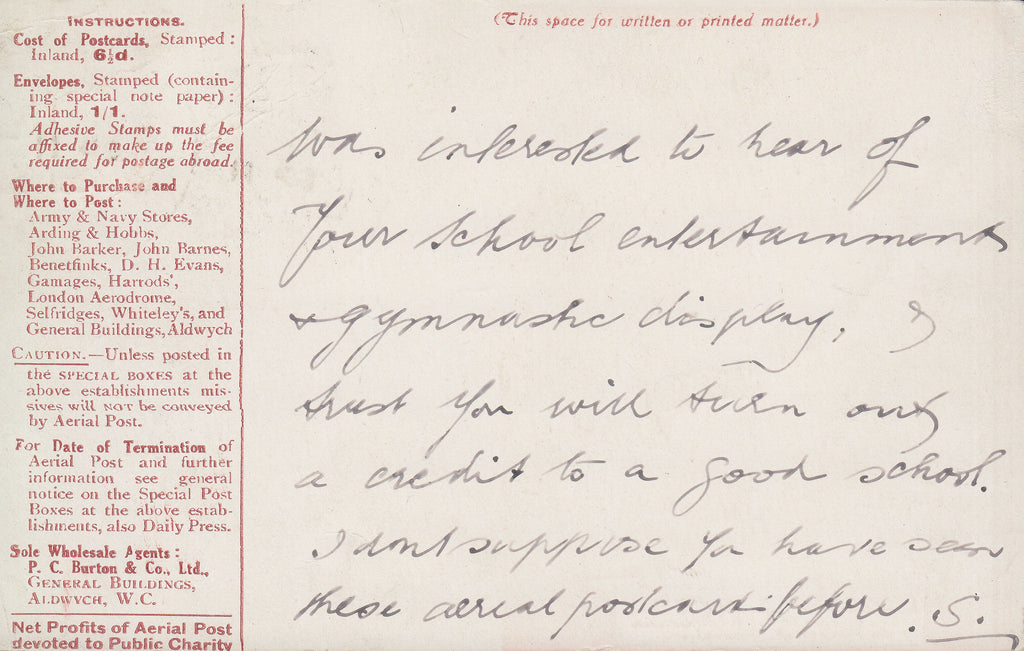 INSTRUCTIONS.
Cost of Postcards, Stamped:
Inland, 6½d.
Envelopes, Stamped (contain-
ing special note paper):
Inland, 1/1.
Adhesive Stamps must be
affixed to make up the fee
required for postage abroad.
Where to Purchase and
Where to Post:
Army & Navy Stores,
Arding & Hobbs,
John Barker, John Barnes,
Benetfinks, D. H. Evans,
Gamages, Harrods',
London Aerodrome,
Selfridges, Whiteley's, and
General Buildings, Aldwych
CAUTION.—Unless posted in
the SPECIAL BOXES at the
above establishments mis-
sives will NOT be conveyed
by Aerial Post.
For Date of Termination of
Aerial Post and further
information see general
notice on the Special Post
Boxes at the above estab-
lishments, also Daily Press.
Sole Wholesale Agents:
P. C. Burton & Co., Ltd.,
GENERAL BUILDINGS,
ALDWYCH, W.C.
Net Profits of Aerial Post
devoted to Public Charity
(This space for written or printed matter.)
Was interested to hear of
Your School entertainment
& gymnastic display, &
trust you will turn out
a credit to a good school.
I dont suppose you have seen
these aerial postcards before. S.